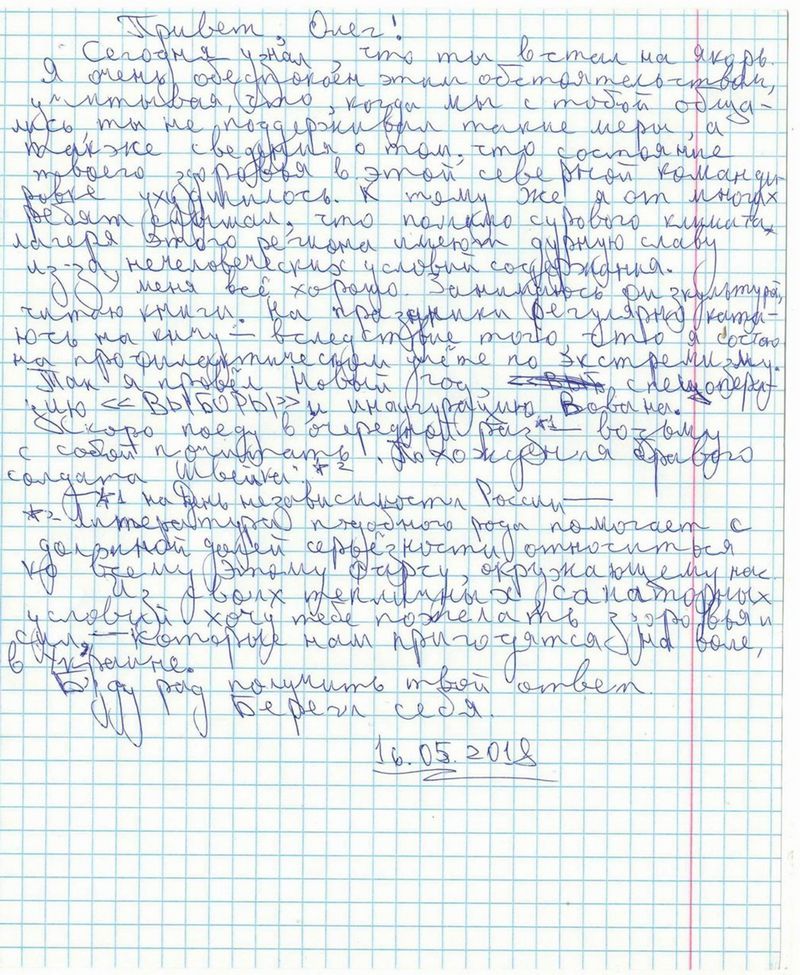 Привет, Олег!
Сегодня узнал, что ты встал на якорь.
Я очень обеспокоен этим обстоятельством,
учитывая, что, когда мы с тобой обща-
лись ты не поддерживал такие меры, а
также сведения о том, что состояние
твоего здоровья в этой северной команди-
ровке ухудшилось. К тому же я от многих
ребят слышал, что помимо сурового климата,
лагеря этого региона имеют дурную славу
из-за нечеловеческих условий содержания.
У меня всё хорошо. Занимаюсь физкультурой,
читаю книги. На праздники регулярно ката-
юсь на кичу – вследствие того, что я состою
на профилактическом учёте по экстремизму.
Так я провёл Новый год, спецопера-
цию «ВЫБОРЫ» и инаугурацию Вована.
Скоро поеду в очередной раз *1 – возьму
с собой почитать "Похождения бравого
солдата Швейка". *2
– *1 на День независимости России –
*2 Литература подобного рода помогает с
должной долей серьёзности относиться
ко всему этому фарсу, окружающему нас.
Из своих тепличных санаторных
условий хочу тебе пожелать здоровья и
сил – которые нам пригодятся на воле,
в Украине.
Буду рад получить твой ответ.
Береги себя.
16.05.2018